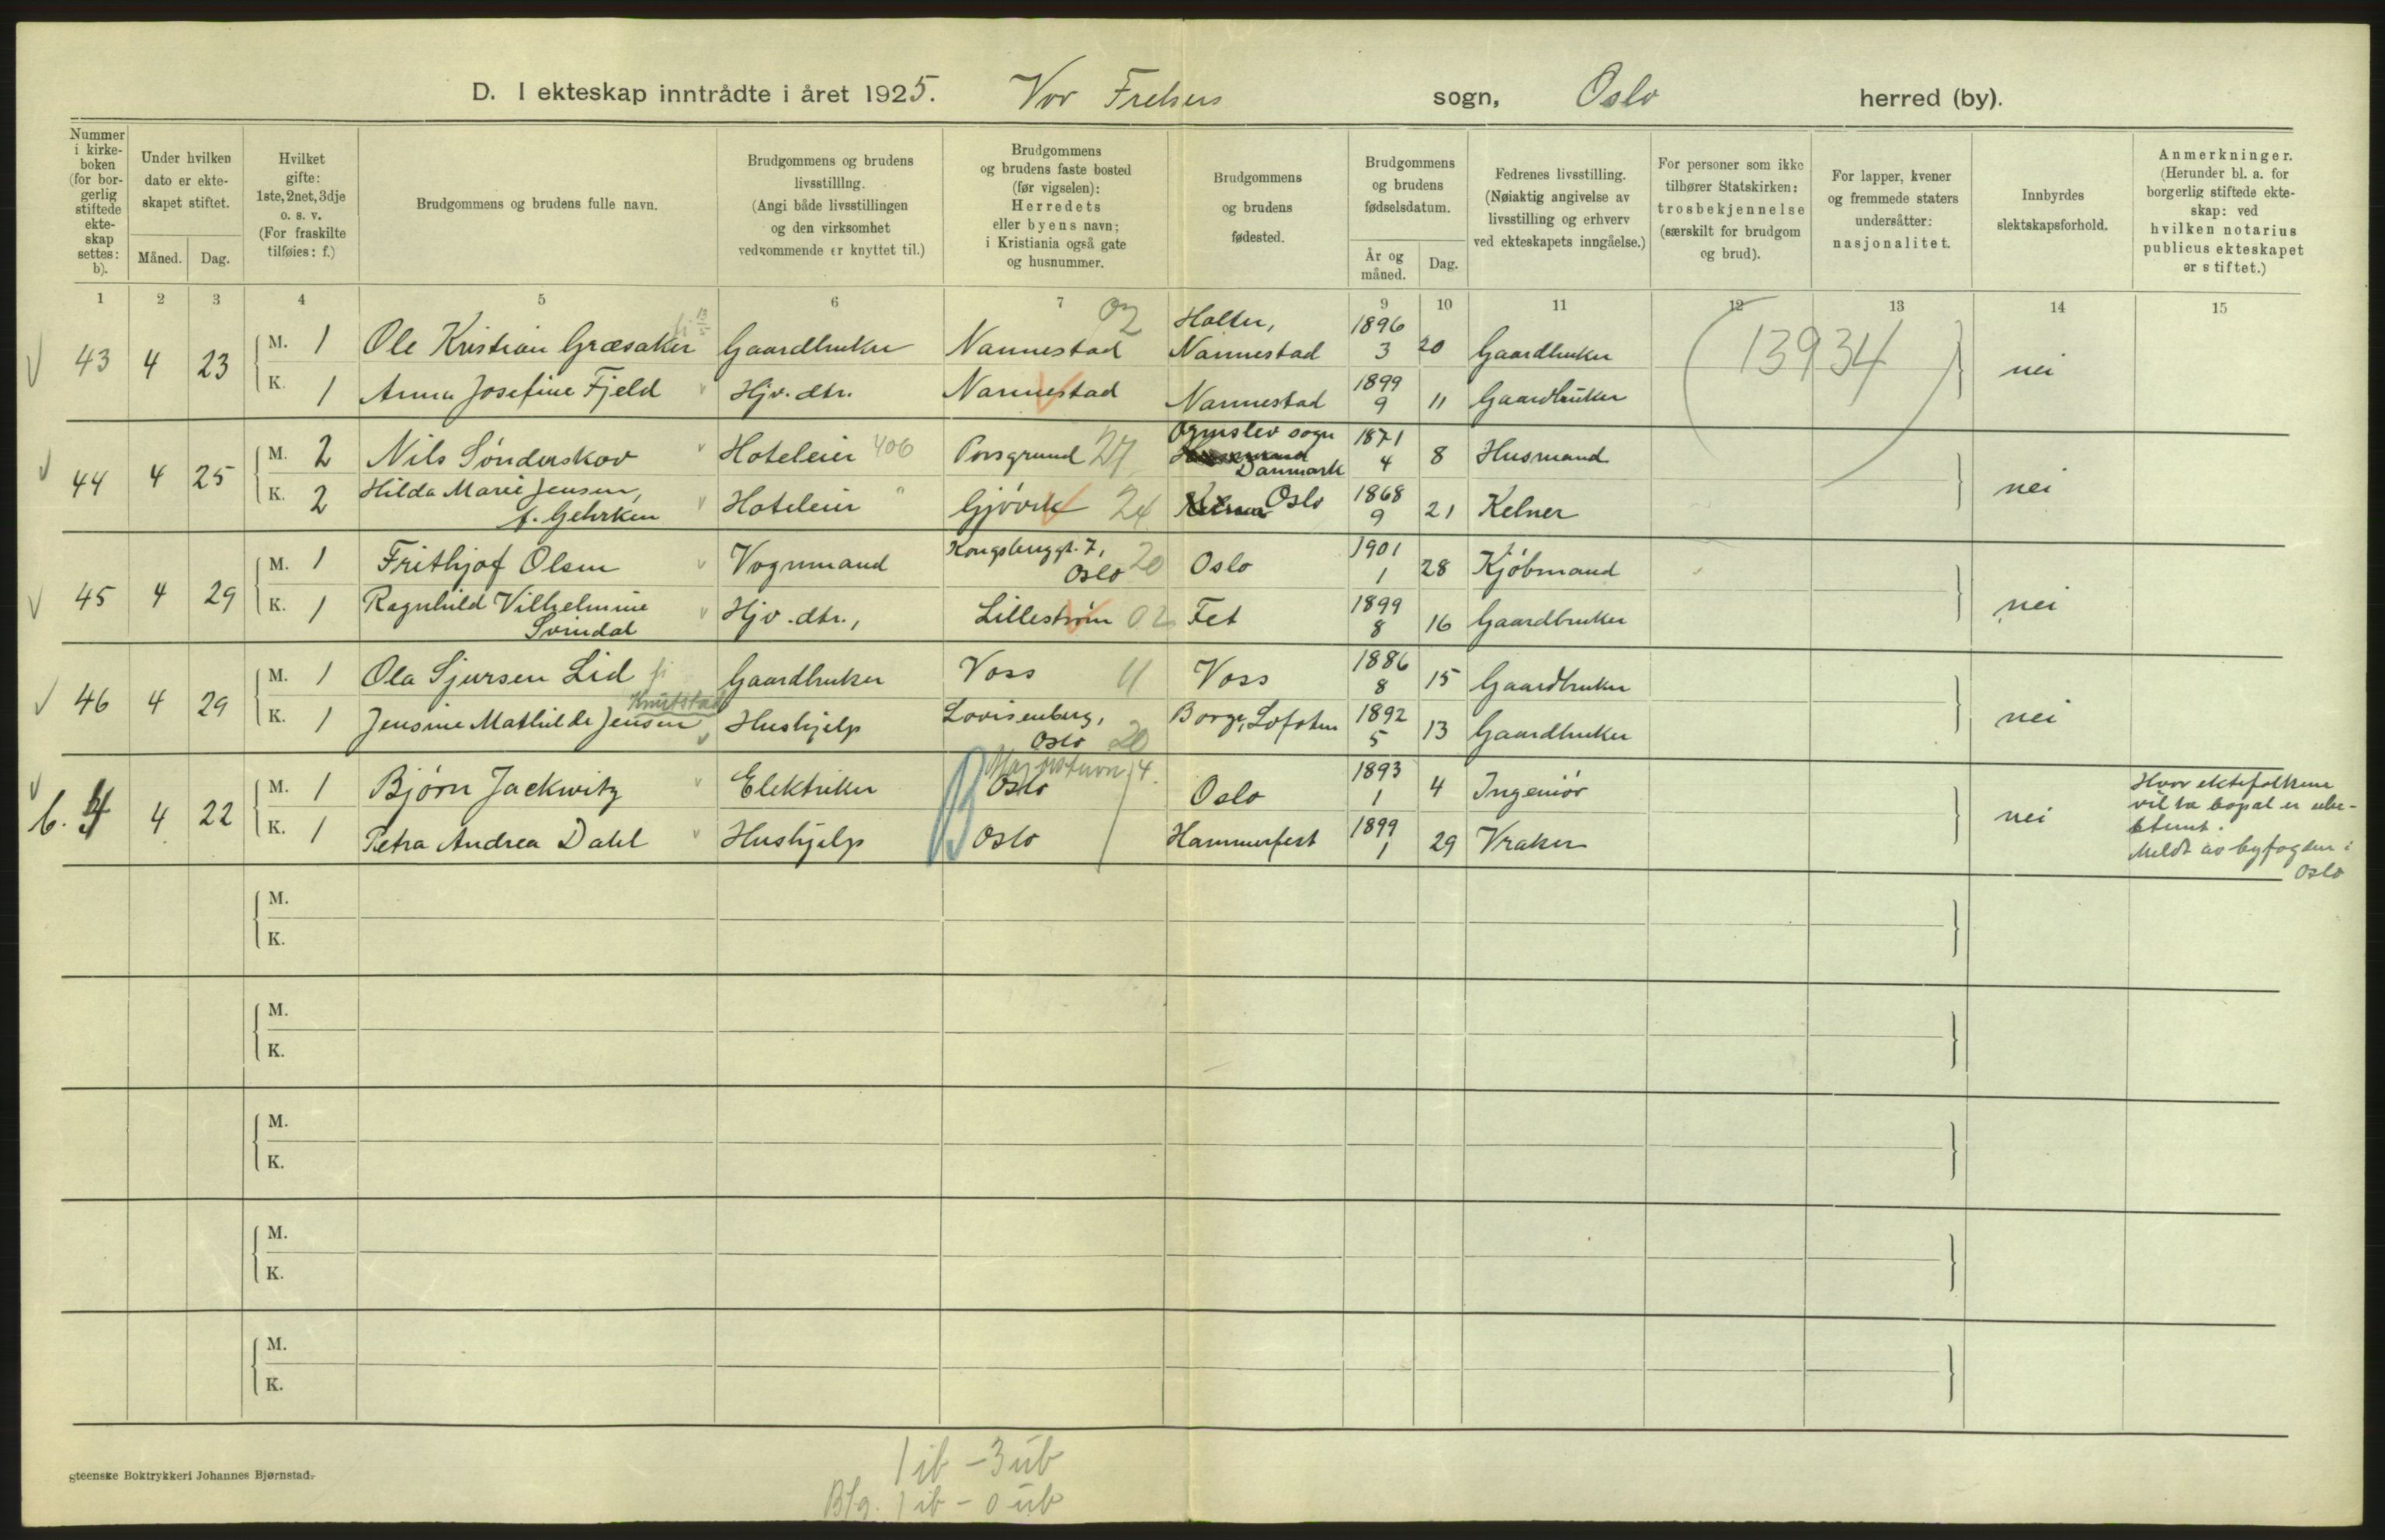 D. I ekteskap inntrådte i året 1925. Vor Frelsers sogn, Oslo herred (by).
Nummer i kirkeboken (for borgerlig stiftede ekteskap settes: b).
Under hvilken dato er ekteskapet stiftet.
Måned. Dag.
Hvilket gifte: 1ste, 2net, 3dje o. s. v. (For fraskilte tilføies: f.)
Brudgommens og brudens fulle navn.
Brudgommens og brudens livsstilling. (Angi både livsstillingen og den virksomhet vedkommende er knyttet til.)
Brudgommens og brudens faste bosted (før vigselen): Herredets eller byens navn; i Kristiania også gate og husnummer.
Brudgommens og brudens fødested.
Brudgommens og brudens fødselsdatum.
År og måned. Dag.
Fedrenes livsstilling. (Nøiaktig angivelse av livsstilling og erhverv ved ekteskapets inngåelse.)
For personer som ikke tilhører Statskirken: trosbekjennelse (særskilt for brudgom og brud).
For lapper, kvener og fremmede staters undersåtter: nasjonalitet.
Innbyrdes slektskapsforhold.
Anmerkninger. (Herunder bl. a. for borgerlig stiftede ekteskap: ved hvilken notarius publicus ekteskapet er stiftet.)
1 2 3 4 5 6 7 8 9 10 11 12 13 14 15
43 4 23 M. 1 Ole Kristian Græsaker Gaardbruker Nannestad 02 Holter, Nannestad 1896 3 20 Gaardbruker (13934) nei
K. 1 Anna Josefine Fjeld Hjv. dtr. Nannestad Nannestad 1899 9 11 Gaardbruker
44 4 25 M. 2 Nils Sønderskov Hoteleier 406 Porsgrund 27 sogn Danmark 1871 4 8 Husmand nei
K. 2 Hilda Marie Jensen, f. Gehrken Hoteleier " Gjøvik 24 Oslo 1868 9 21 Kelner
45 4 29 M. 1 Frithjof Olsen Vognmand Kongsberggt. 7, Oslo 20 Oslo 1901 1 28 Kjøbmand nei
K. 1 Ragnhild Vilhelmine Svindal Hjv. dtr., Lillestrøm 02 Fet 1899 8 16 Gaardbruker
46 4 29 M. 1 Ola Sjursen Lid Gaardbruker Voss 11 Voss 1886 8 15 Gaardbruker nei
K. 1 Jensine Mathilde Jensen Knutstad Hushjelp Lovisenberg, Oslo 20 Borge, Lofoten 1892 5 13 Gaardbruker
b. 4 4 22 M. 1 Bjørn Jackwitz Elektriker Oslo Oslo 1893 1 4 Ingeniør nei
K. 1 Petra Andrea Dahl Hushjelp Oslo Hammerfest 1899 1 29 Vraker
Hvor ektefolkene
vil ta bopæl er ube-
stemt.
Meldt av byfogden i
Oslo
M.
K.
M.
K.
M.
K.
M.
K.
M.
K.
Steenske Boktrykkeri Johannes Bjørnstad.
1 ib - 3 ub
Bfg. 1 ib - 0 ub